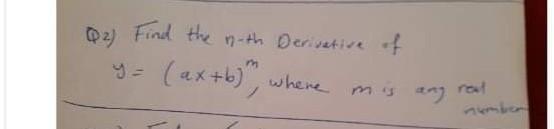 Q2) Find the n-th Derivative of
y = (ax+b)^m, where m is any real
number